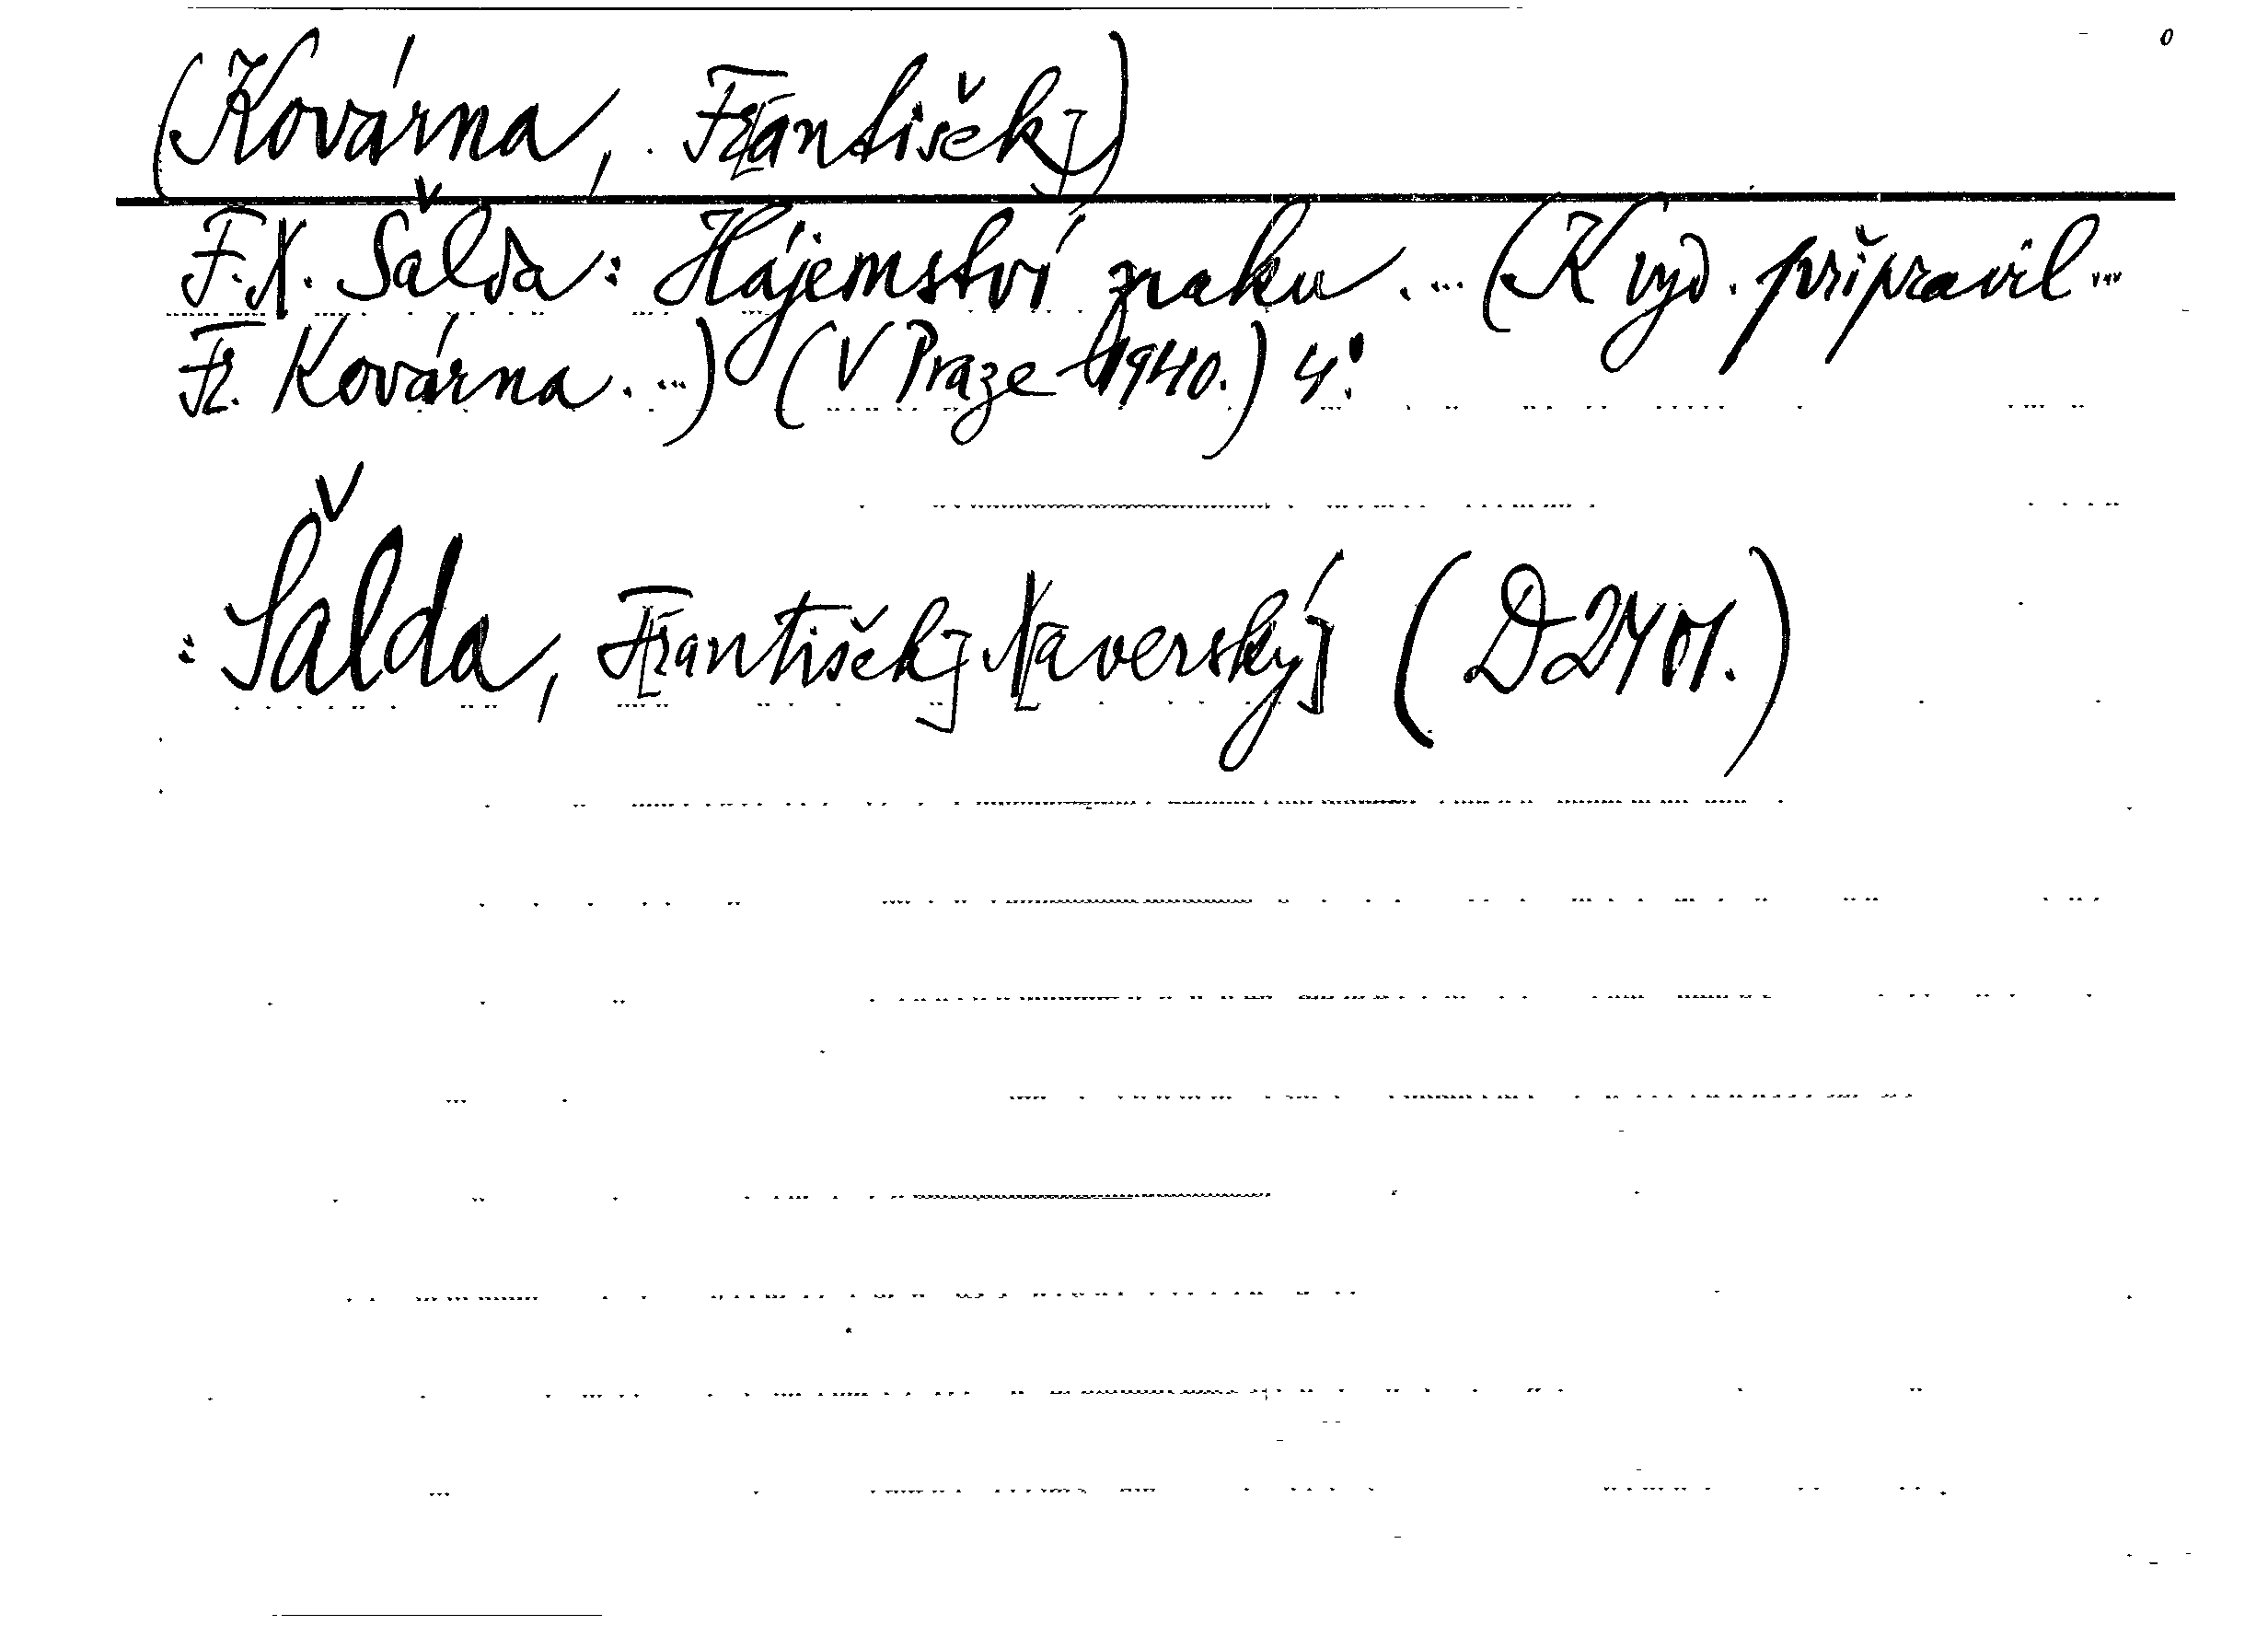 (Kovárna, Fr[antišek])
F. X. Šalda: Hájemství zraku. ... (K vyd. připravil ...
Fr. Kovárna. ...) (V Praze 1940.) 4°.
: Šalda, F[rantišek] X[averský] (D 2401.)